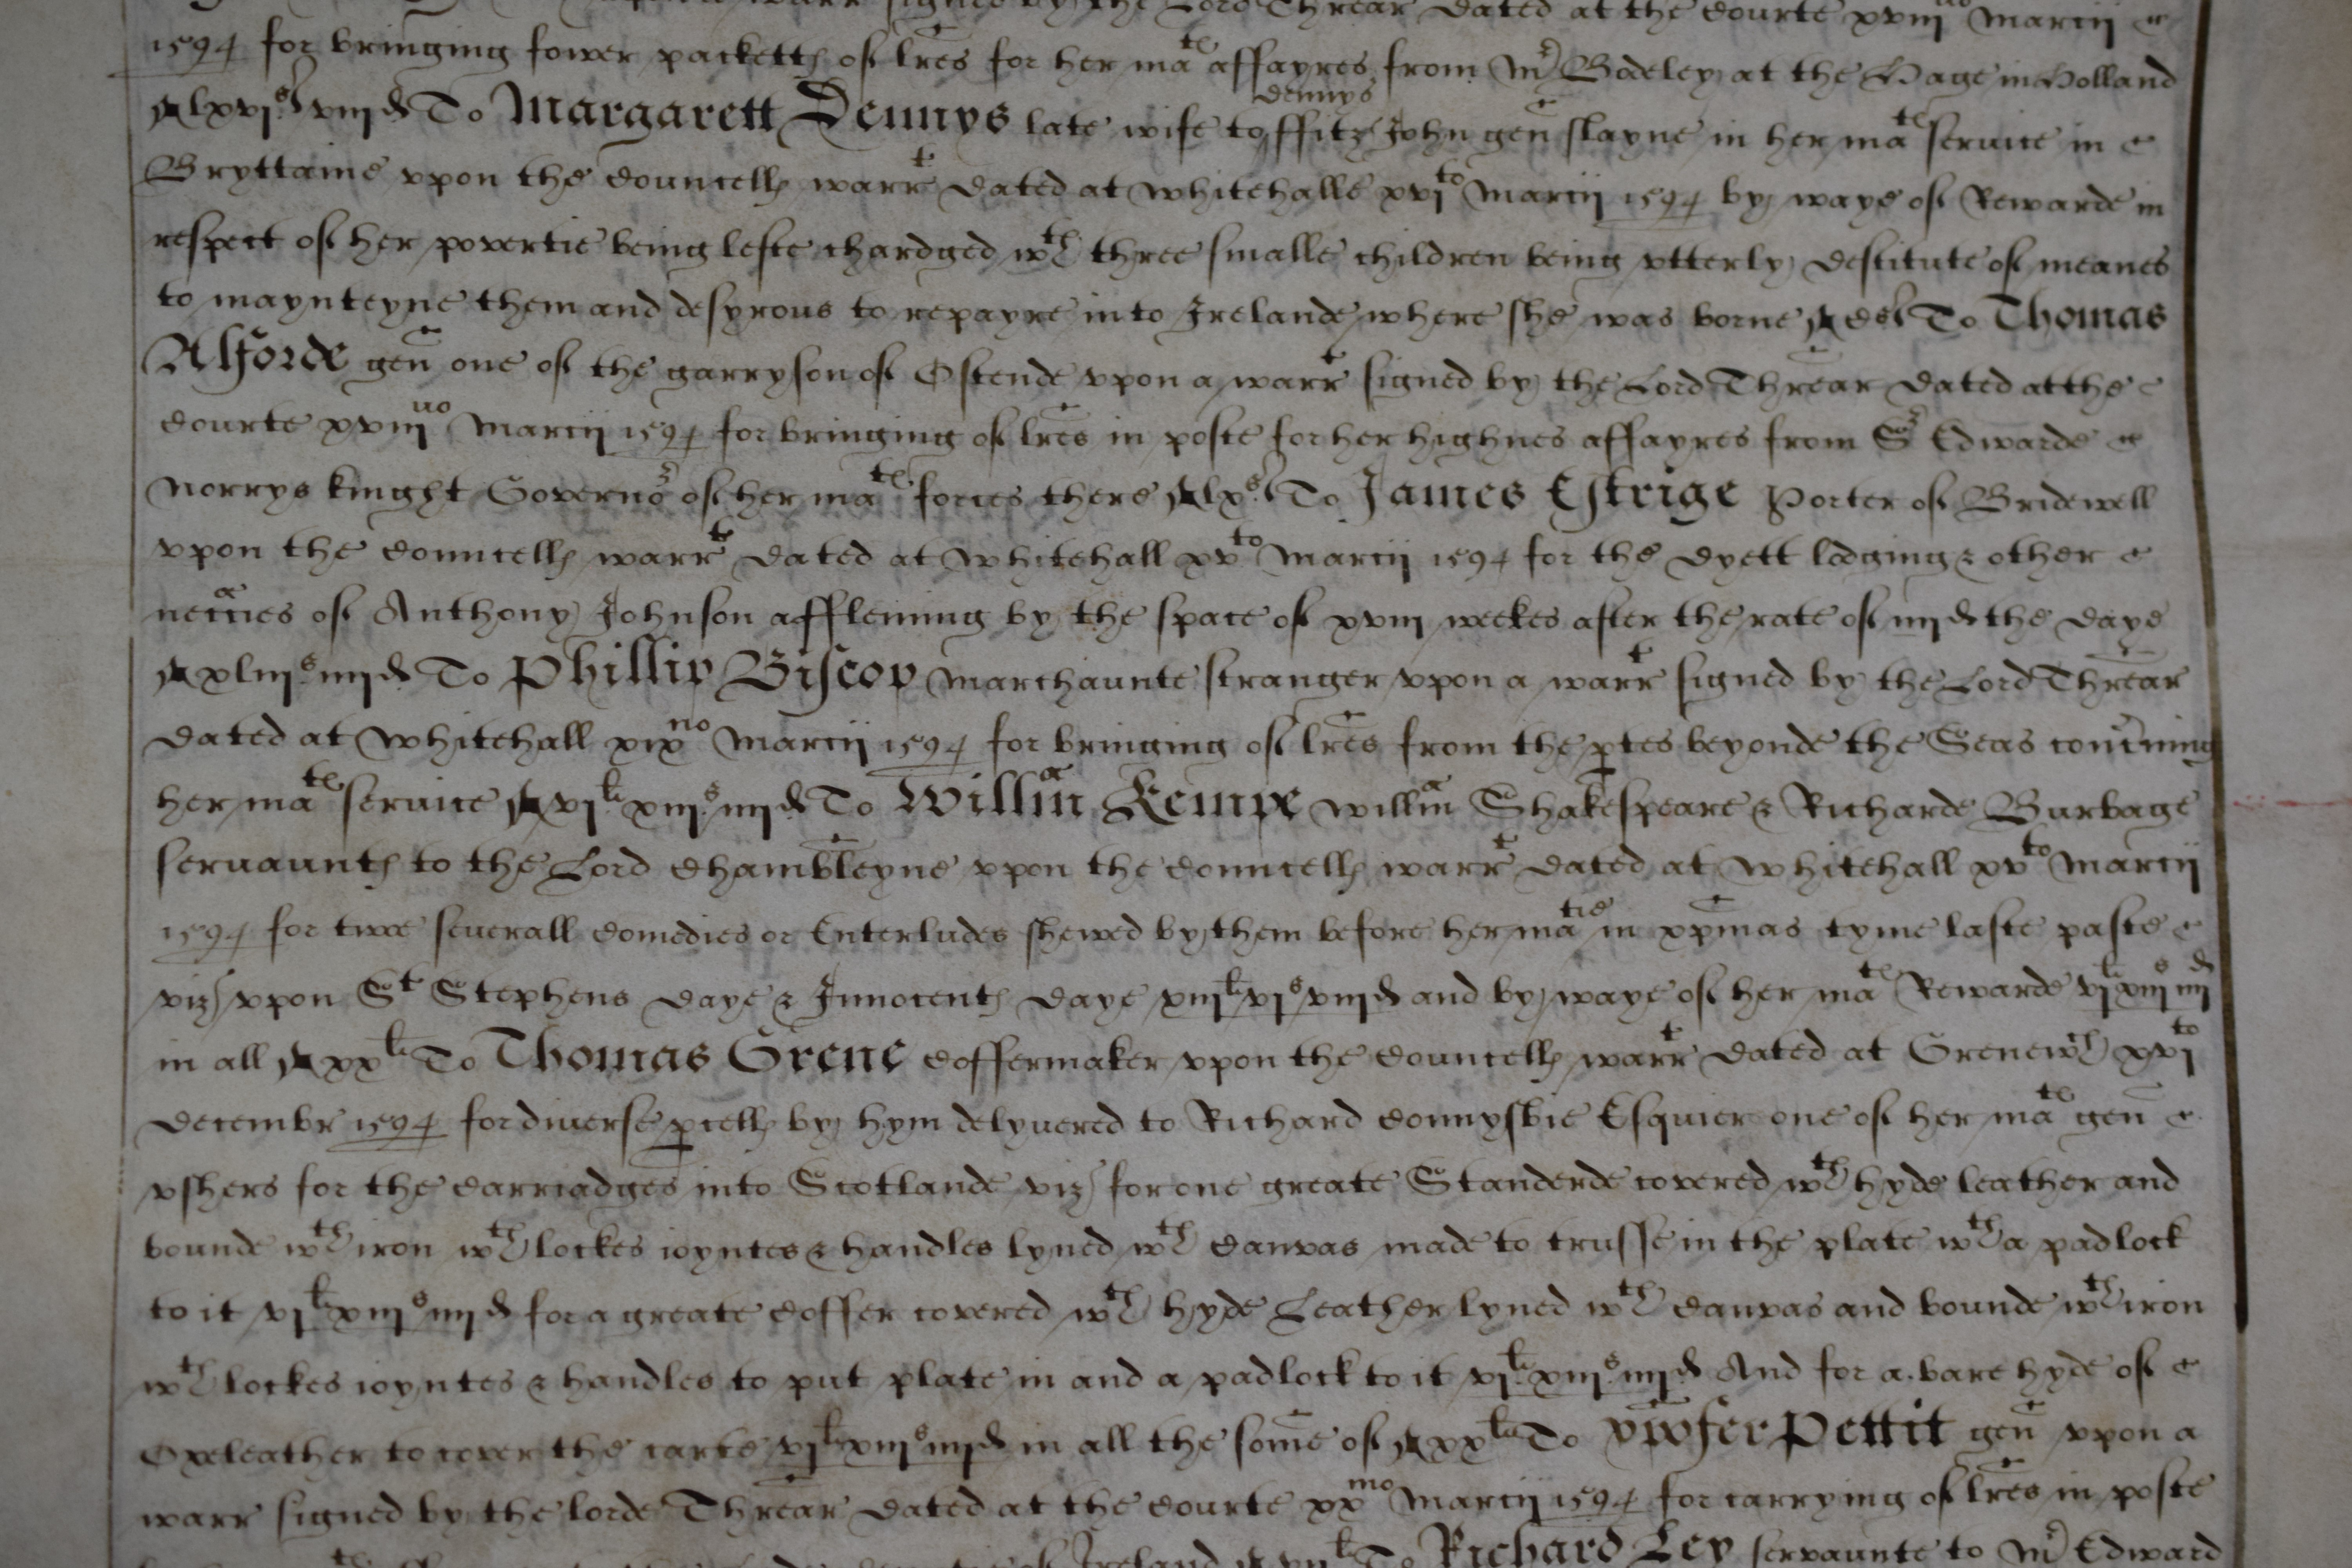 signed by the Lord Threar dated at the Courte xviijuo Marcij
1594 for bringing fower packetts of lres for her mats affayres from Mr Bodeley at the Hage in Holland
lxvjs viijd To Margarett Dennys late wife to ffitz John dennys gen slayne in her mats service in
Bryttaine vpon the Councells warrt dated at Whitehalle xvjto Marcij 1594 by waye of Rewarde in
respect of her povertie being lefte chardged wth three smalle children being vtterly destitute of meanes
to maynteyne them and desyrous to repayre into Irelande where she was borne Cs To Thomas
Alforde gen one of the garryson of Ostende vpon a warrt signed by the Lord Threar dated at the
Courte xviijuo Marcij 1594 for bringing of lres in poste for her highnes affayres from Sr Edwarde
Norrys knight Governor of her mats forces there lxs To James Estrige Porter of Bridewell
vpon the Councells warrt dated at Whitehall xvto Marcij 1594 for the dyett lodging & other
neccies of Anthony Johnson a ffleming by the space of xviij weekes after the rate of iiijd the daye
xliijs iiijd To Phillip Biscop Marchaunte stranger vpon a warrt signed by the Lord Threar
dated at Whitehall xixno Marcij 1594 for bringing of lres from the ptes beyonde the Seas concrning
her mats service vjli xiijs iiijd To Willm Kempe Willm Shakespeare & Richarde Burbage
servaunts to the Lord Chambleyne vpon the Councells warrt dated at Whitehall xvto Marcij
1594 for twoe severall Comedies or Enterludes shewed by them before her matie in xpmas tyme laste paste
viz vpon St Stephens daye & Innocents daye xiijli vjs viijd and by waye of her mats Rewarde vjli xiijs iiijd
in all xxli To Thomas Grene Coffermaker vpon the Councells warrt dated at Grenewch xvjto
Decembr 1594 for diverse pcells by hym delyvered to Richard Connysbie Esquier one of her mats gen
vshers for the Carriadges into Scotlande viz for one greate Standerde covered wth hyde leather and
bounde wth iron wth lockes ioyntes & handles lyned wth Canvas made to trusse in the plate wth a padlock
to it vjli xiijs iiijd for a greate Coffer covered wth hyde Leather lyned wth Canvas and bounde wth iron
wth lockes ioyntes & handles to put plate in and a padlock to it vjli xiijs iiijd And for a bare hyde of
Oxeleather to cover the carte vjli xiijs iiijd in all the some of xxli To Pettit gen vpon a
warr signed by the lorde Threar dated at the Courte xxmo Marcij 1594 for carrying of lres in poste
Ireland To Richard Ley servaunte to Mr Edward